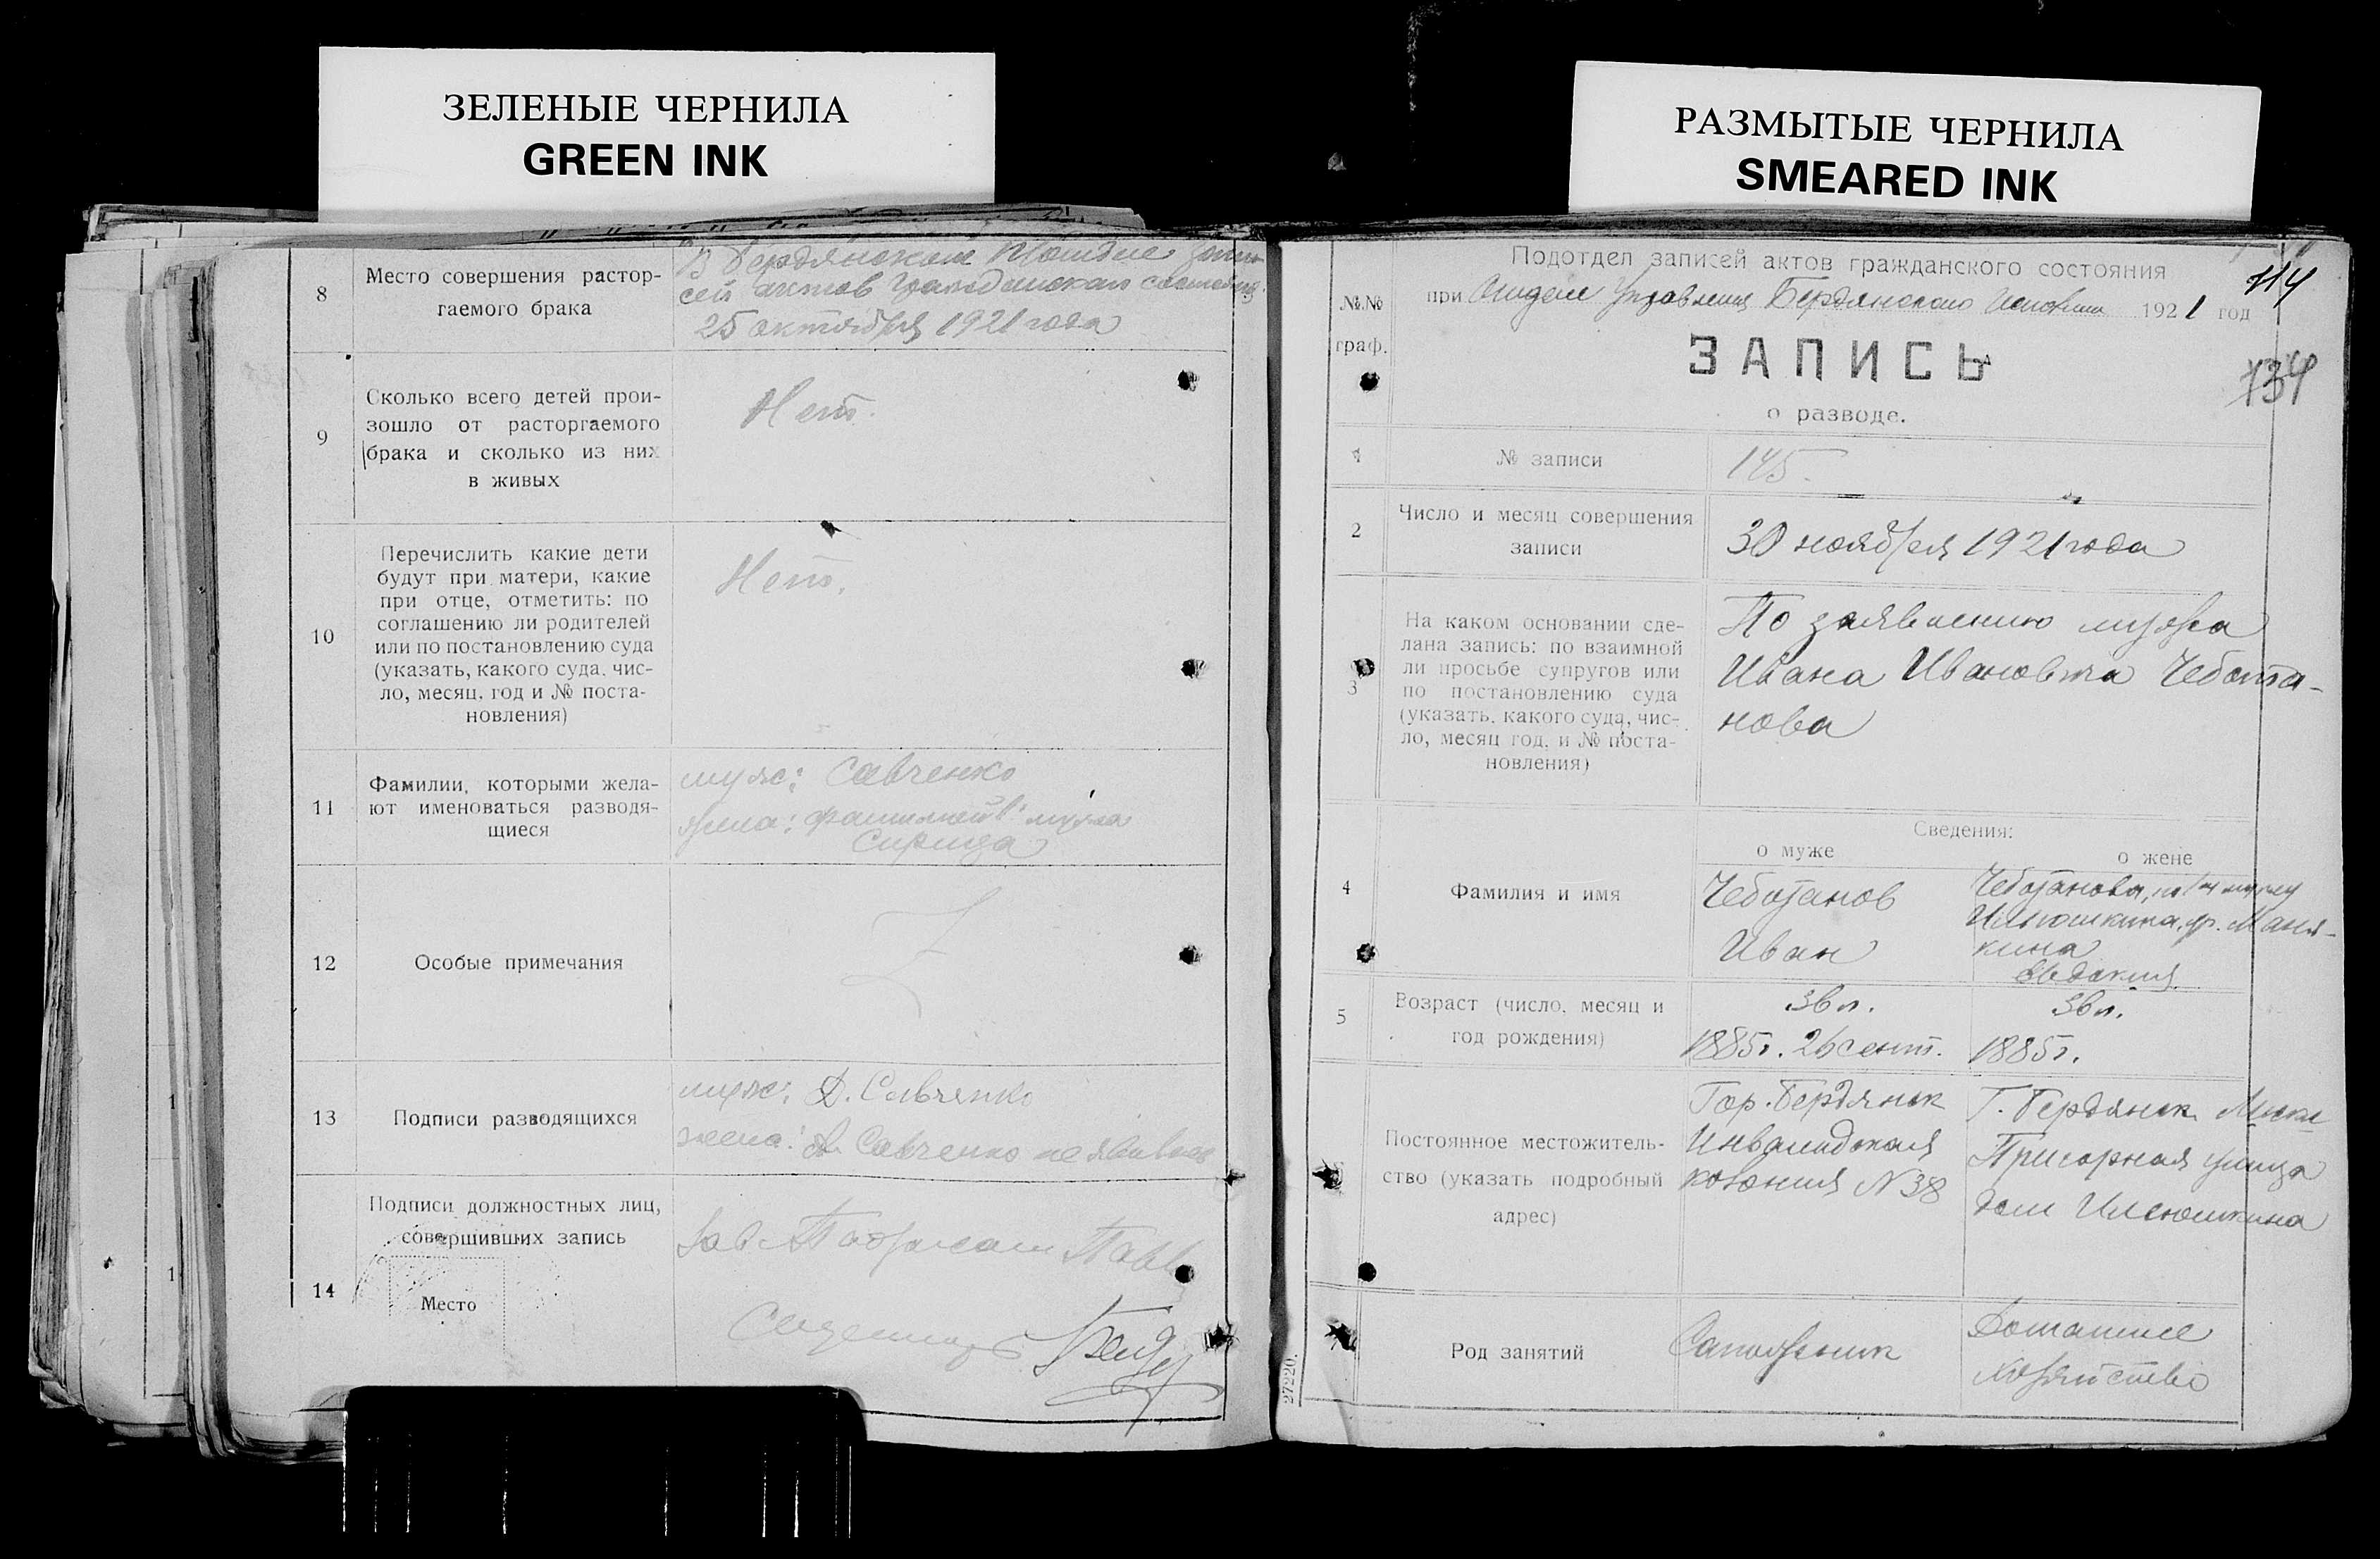 ЗЕЛЕНЫЕ ЧЕРНИЛА
GREEN INK
РАЗМЫТЫЕ ЧЕРНИЛА
SMEARED INK
8
Место совершения растор-
гаемого брака
В Бердянском
сей актов гражданского состояния
25 октября 1921 года
9
Сколько всего детей прои-
зошло от расторгаемого
брака и сколько из них
в живых
Нет.
10
Перечислить какие дети
будут при матери, какие
при отце, отметить: по
соглашению ли родителей
или по постановлению суда
(указать, какого суда, чис-
ло, месяц, год и № поста-
новления)
Нет.
11
Фамилии, которыми жела-
ют именоваться разводя-
щиеся
муж: Савченко
жена: мужа
Сирица
12
Особые примечания
13
Подписи разводящихся
муж: Д. Савченко
жена: А. Савченко не явилась
14
Подписи должностных лиц,
совершивших запись
Место
Зав.
№№
граф.
Подотдел записей актов гражданского состояния
при Отделе Управления Бердянского Исполкома 1921 год
114
134
ЗАПИСЬ
о разводе.
1
№ записи
145.
2
Число и месяц совершения
записи
30 ноября 1921 года
3
На каком основании сде-
лана запись: по взаимной
ли просьбе супругов или
по постановлению суда
(указать, какого суда, чис-
ло, месяц год, и № поста-
новления)
По заявлению мужа
Ивана Ивановича Чебота-
нова
Сведения:
о муже
о жене
4
Фамилия и имя
Чеботанов
Иван
Чеботанова, по 1му мужу
Илюшкина, ур. Маня-
кина
Евдокия
5
Возраст (число, месяц и
год рождения)
36 л.
1885 г. 26 сент.
36 л.
1885 г.
Постоянное местожитель-
ство (указать подробный
адрес)
Гор. Бердянск
Инвалидская
колония № 38
Г. Бердянск
Пригорная улица
дом Илюшкина
Род занятий
Сапожник
Домашнее
хозяйство
27220.